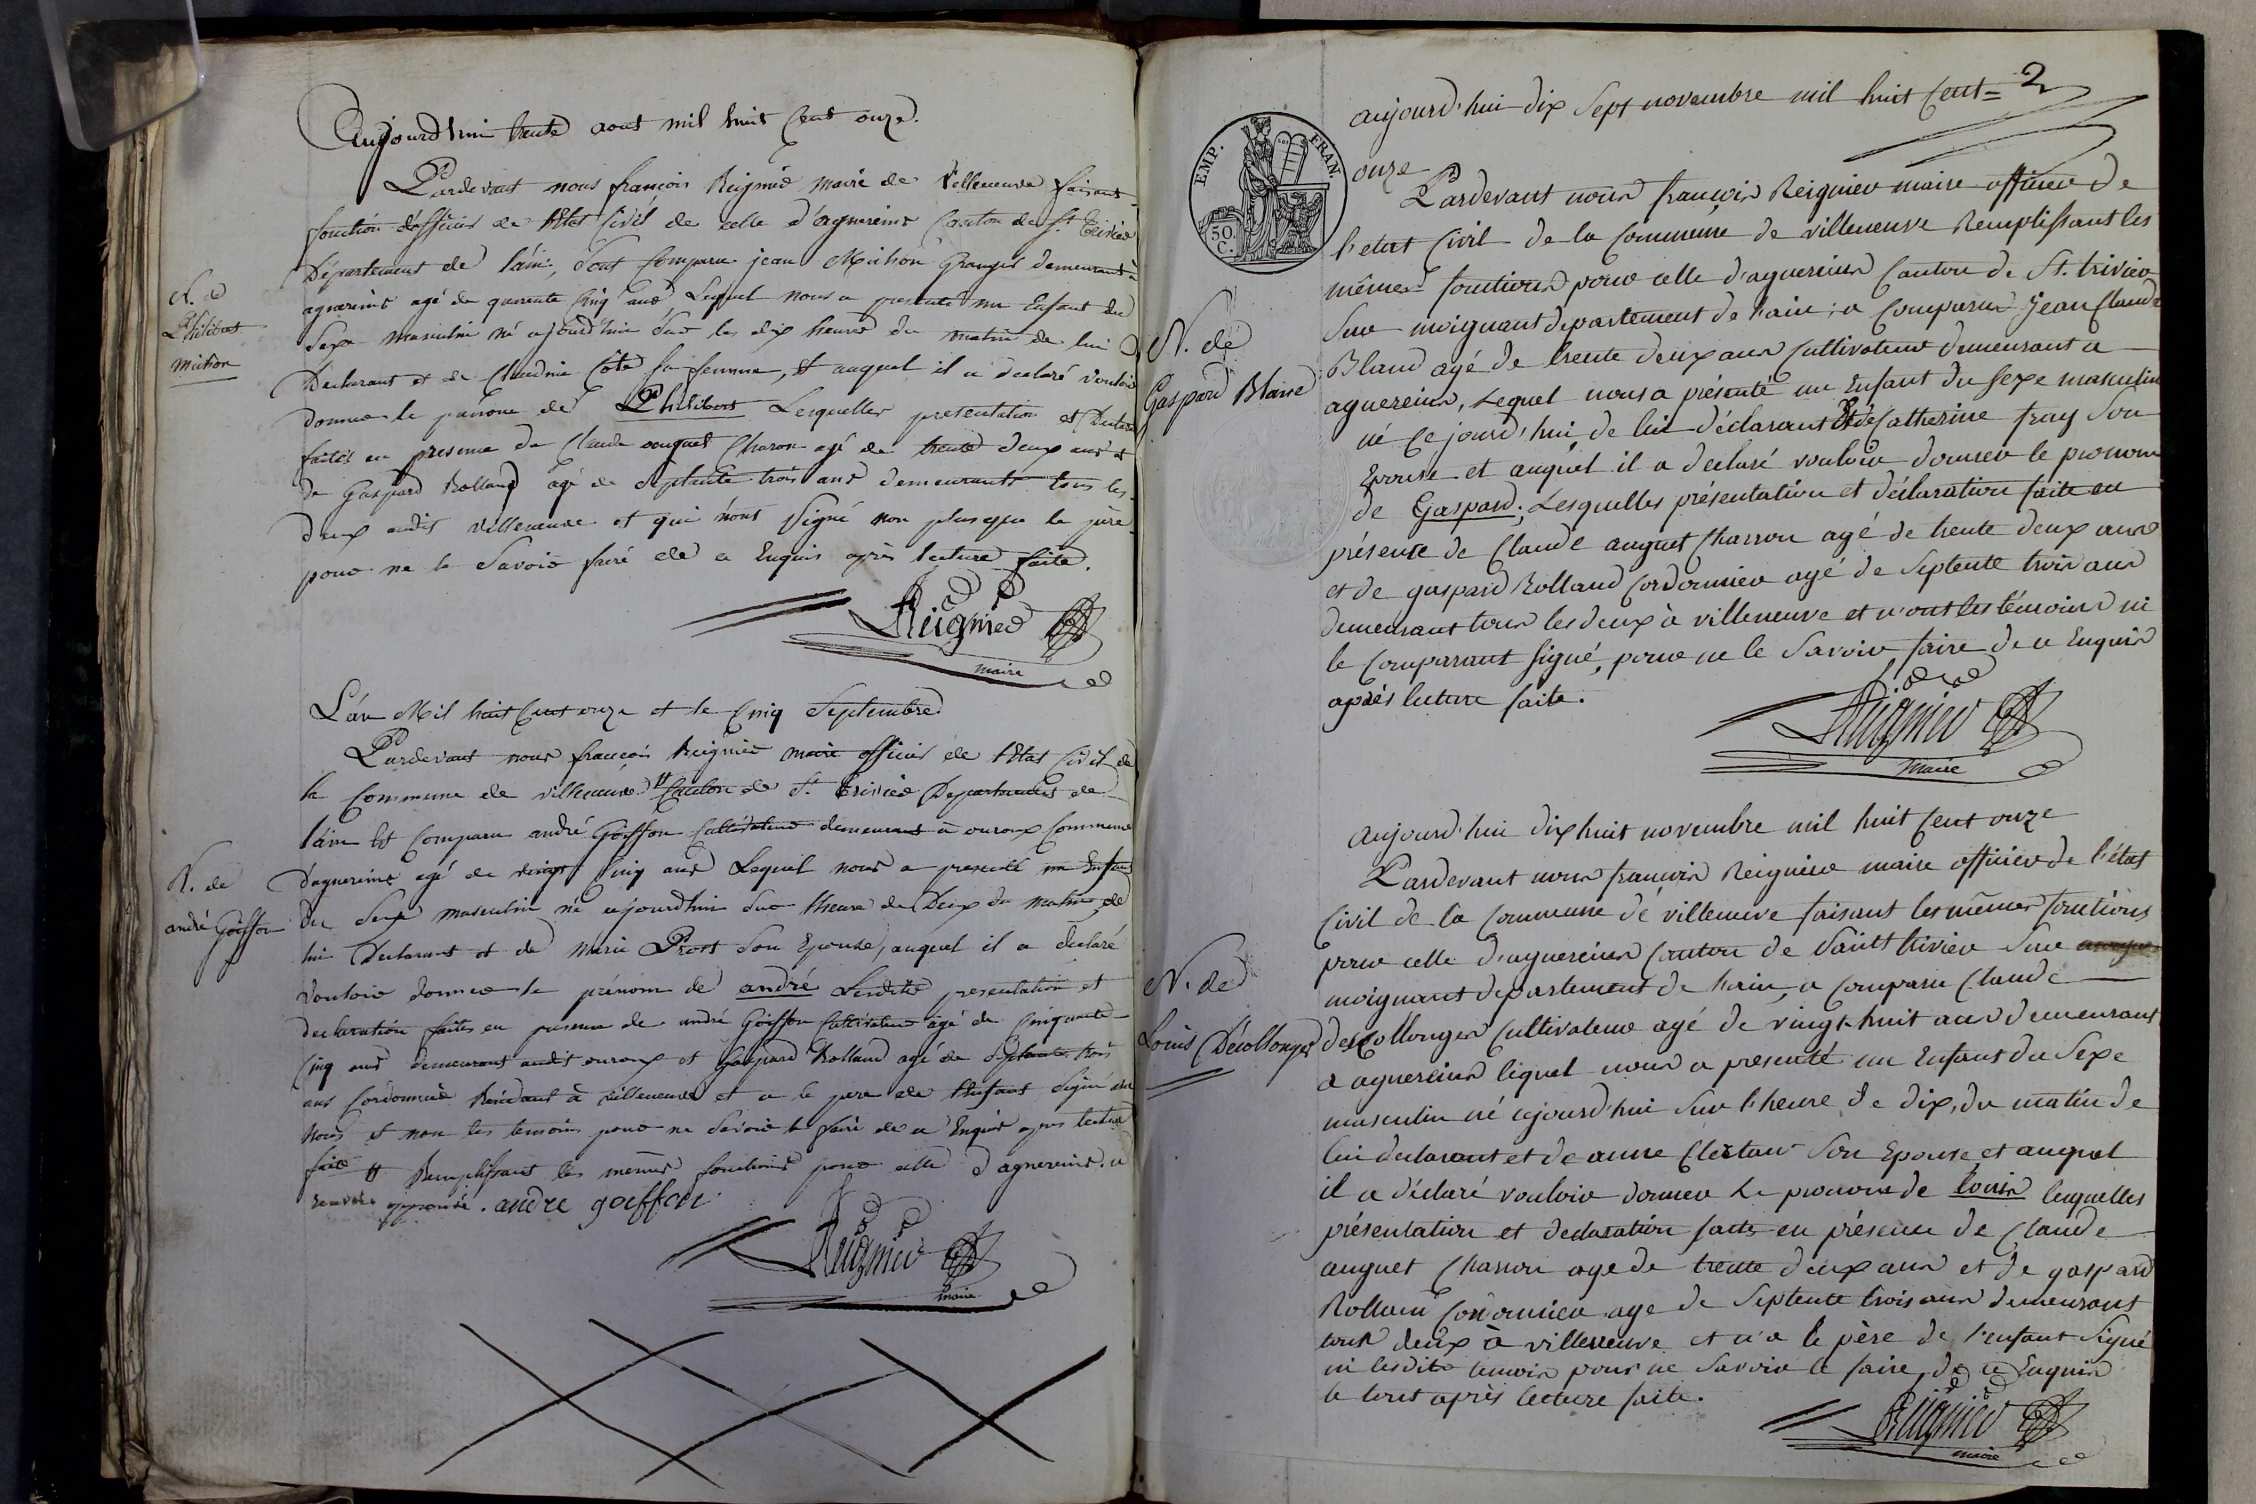 Aujourdhui trente aout mil huit Cent onze.
Pardevant nous françois Reignié maire de Villeneuve faisant
fonction d'officier de l'Etat Civil de celle d'agnereins Canton de St. Trivier
Département de l'ain, dont Comparu jean Michon Granger demeurant à
agnereins agé de quarente Cinq ans Lequel nous a presenté un Enfant du
Sexe masculin né ajourd'hui sur les dix heures du matin de lui
Declarant et de Claudine Côte sa femme, et auquel il a declaré vouloir
donner le prénom de Philibert Lesquelles presentation et Declar
faites en presence de Claude auguet Charon agé de trente deux ans et
de Gaspard Rolland agé de septente trois ans demeurants tous les
deux audit Villeneuve et qui n'ont signé non plus que le père
pour ne le Savoir faire de ce Enquis après lecture faite.
Reignier
maire
N. de
Philibert
michon
L'an Mil huit Cent onze et le Cinq Septembre
Pardevant nous françois Reignier maire officier de l'Etat Civil de
la Commune de villeneuve # Canton de St. Trivier Departement de
l'ain Est Comparu andré Goiffon Cultivateur demeurant à ouroux Commune
d'agnereins agé de vingt Cinq ans Lequel nous a presenté un Enfant
du Sexe masculin né ajourdhui sur l'heure de Deux du matin de
lui Declarant et de Marie Prost Son Epouse, auquel il a declaré
Vouloir donner le prénom de andré Lesdites presentation et
declaration faites en presence de andré Goiffon Cultivateur agé de Cinquante
Cinq ans demeurant audit ouroux et Gaspard Rolland agé de septante trois
ans Cordonnier Residant à villeneuve et a le pere de l'Enfant Signé avec
nous et non les temoins pour ne Savoir le faire de ce Enquis apres lecture
faite # Remplissant les memes fonctions pour celle d'agnereins. ce
renvoi approuvé. andre goiffon
Reignier
maire
N. de
andré Goiffon
2
aujourd'hui dix Sept novembre mil huit Cent=
onze
Pardevant nous françois Reignier maire officier de
l'etat Civil de la Commune de villeneuve Remplissant les
mêmes fonctions pour celle d'agnereins Canton de St. trivier
Sur moignant departement de l'ain; a Comparu Jean Claude
Blanc agé de trente deux ans Cultivateur demeurant a
agnereins, Lequel nous a présenté un Enfant du Sexe masculin
né Ce jourd'hui, de lui déclarant et de Catherine fray Son
Epouse et auquel il a declaré vouloir donner le pronom
de Gaspard; Lesquelles présentation et déclaration faite en
présence de Claude auguet Charron agé de trente deux ans
et de gaspard Rolland Cordonnier agé de Septente trois ans
demeurant tous les deux à villeneuve et n'ont les témoins ni
le Comparant Signé, pour ne le Savoir faire de ce Enquis
après lecture faite.
Reignier
maire
EMP. FRAN.
50.
C.
N. de
Gaspard Blanc
aujourd'hui dix huit novembre mil huit Cent onze
Pardevant nous françois Reignier maire officier de l'état
Civil de la Commune de villeneuve faisant les mêmes fonctions
pour celle d'agnereins Canton de Saint trivier Sur
moignant departement de l'ain, a Comparu Claude
descollonges Cultivateur agé de vingt-huit ans demeurant
a agnereins lequel nous a presenté un Enfant du Sexe
masculin né ajourd'hui Sur l'heure de dix, du matin de
lui declarant et de anne Son Epouse, et auquel
il a déclaré vouloir donner Le pronom de Louis lesquelles
présentation et declaration faites en présence de Claude
auguet Charron age de trente deux ans et de gaspard
Rolland Cordonnier age de Septente trois ans demeurant
tous deux à villeneuve et n'a le père de l'enfant Signé
ni lesdits temoins pour ne Savoir le faire, de ce Enquis
le tout après lecture faite.
Reignier
maire
N. de
Louis Décollonges